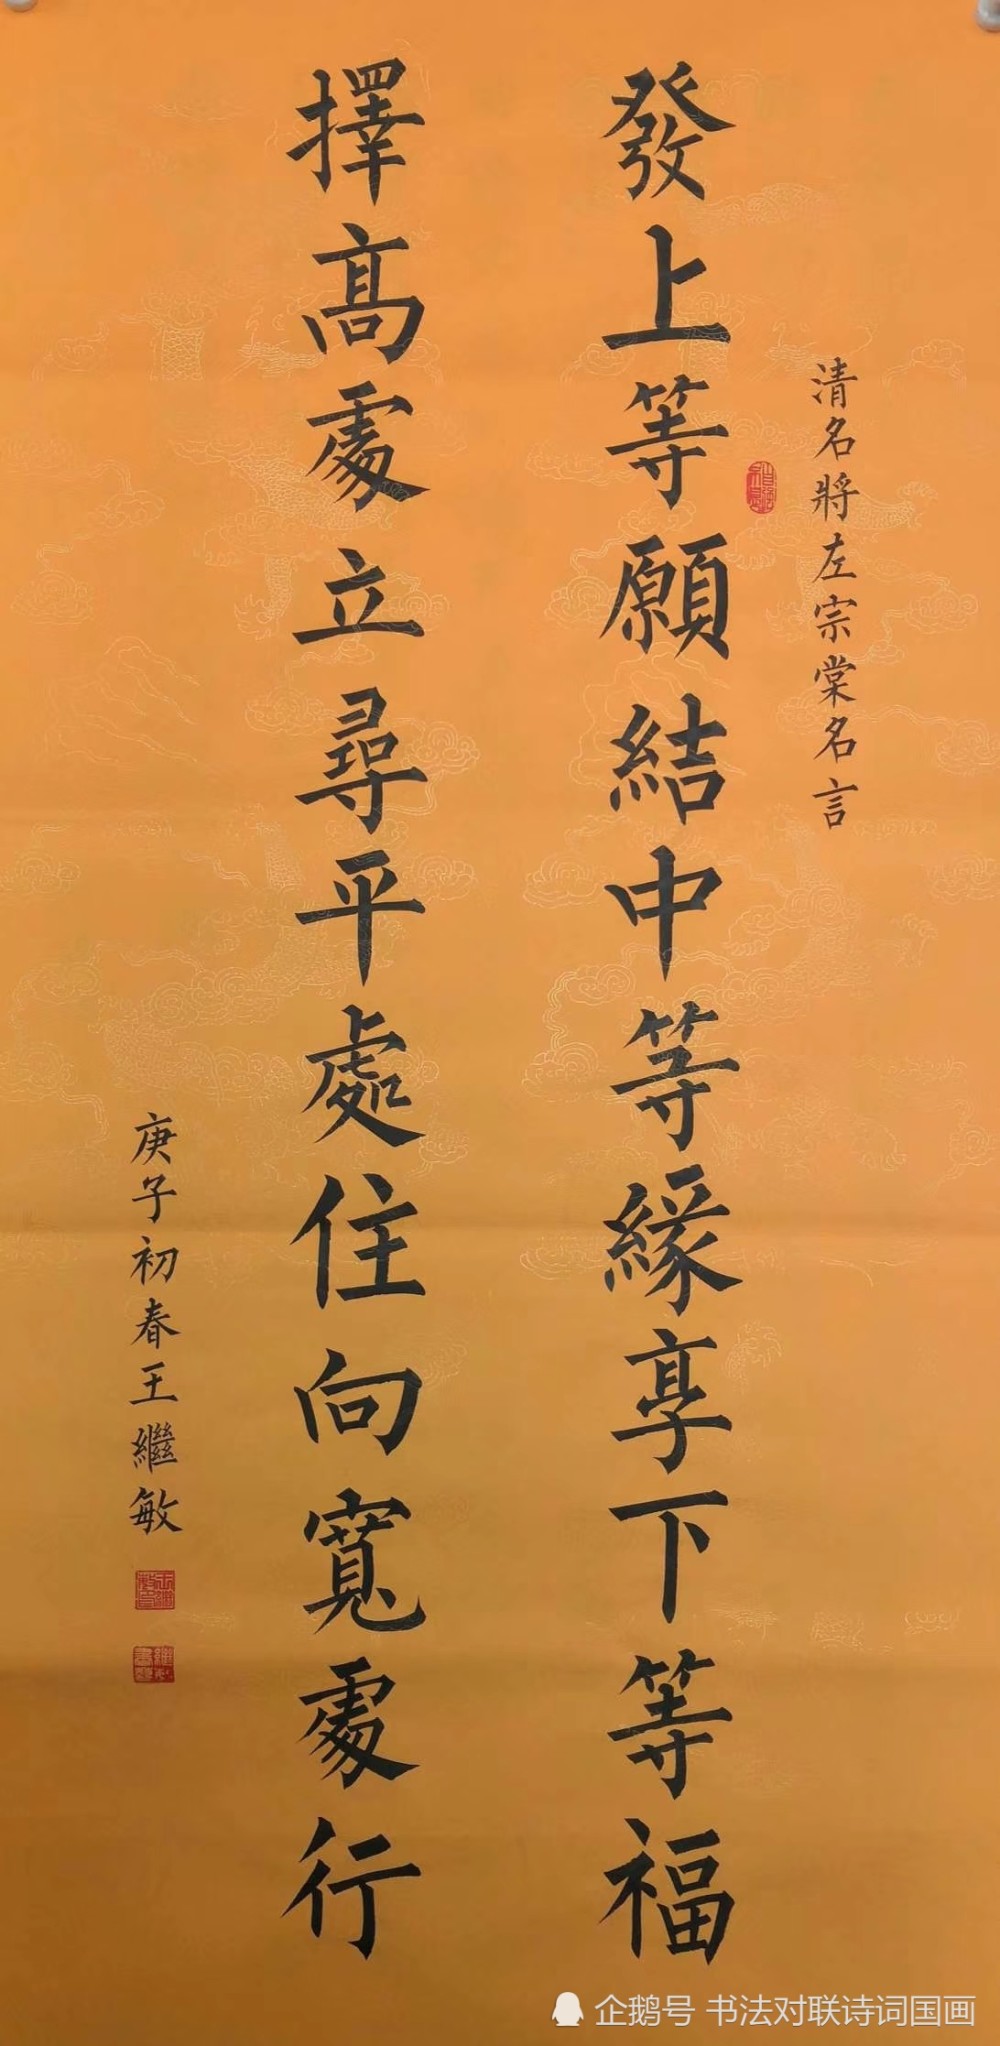 清名將左宗棠名言
發上等願結中等緣享下等福
擇高處立尋平處住向寬處行
庚子初春王繼敏
企鹅号 书法对联诗词国画